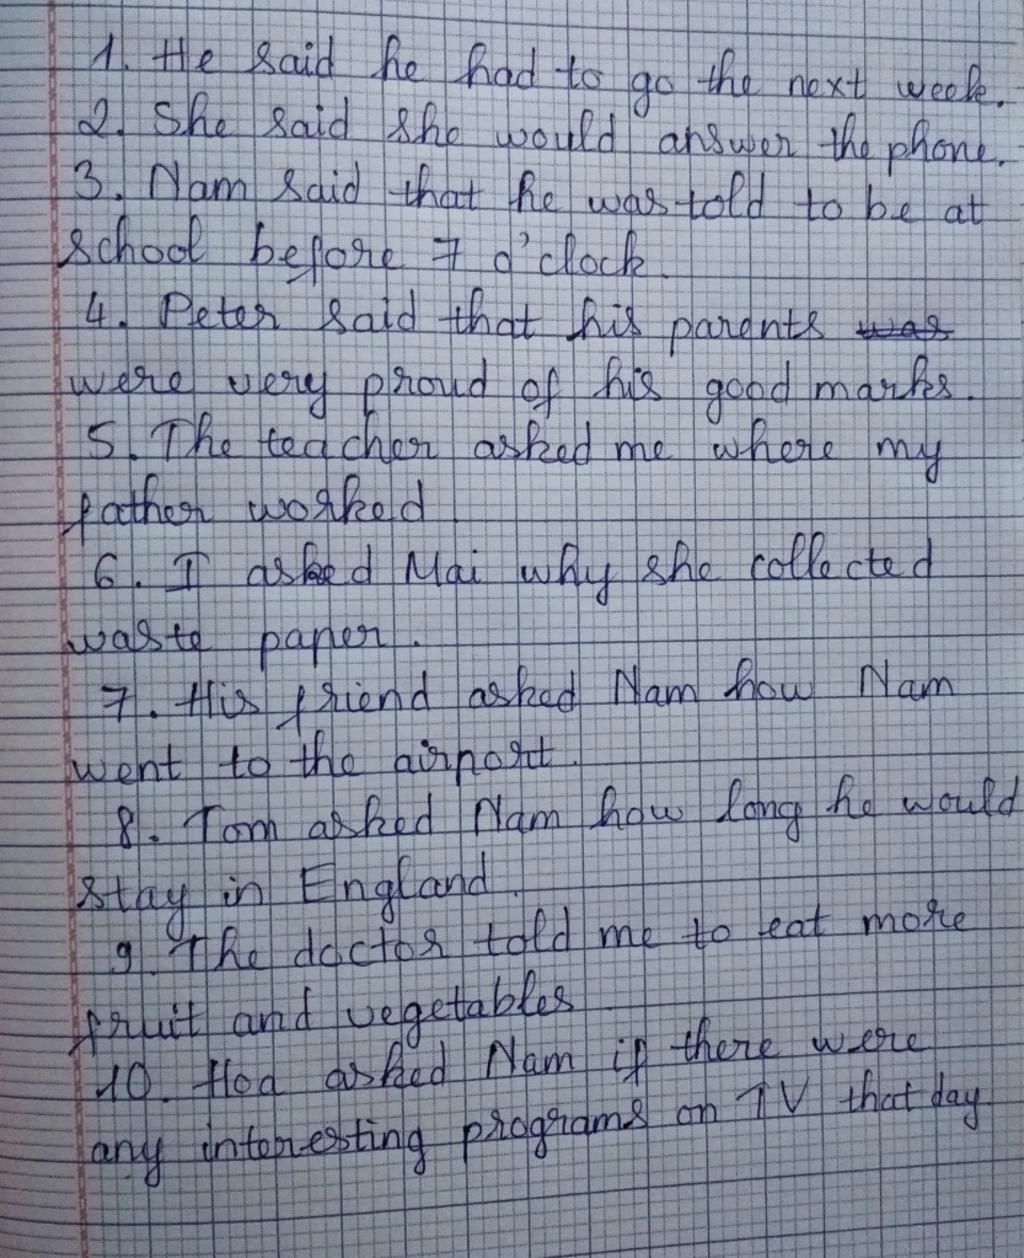 1. He said he had to go the next week.
2. She said she would answer the phone.
3. Nam said that he was told to be at
school before 7 o'clock.
4. Peter said that his parents was
were very proud of his good marks.
5. The teacher asked me where my
father worked
6. I asked Mai why she collected
waste paper.
7. His friend asked Nam how Nam
went to the airport.
8. Tom asked Nam how long he would
stay in England.
9. The doctor told me to eat more
fruit and vegetables
10. Hoa asked Nam if there were
any interesting programs on TV that day